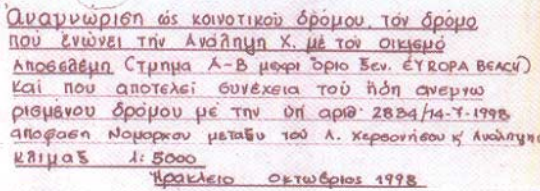 Ἀναγνώριση ὡς κοινοτικοῦ δρόμου, τόν δρόμο
πού ἑνώνει τήν Ἀνάληψη Χ. μέ τόν οικισμό
Αποσελέμη (τμημα Α-Β μεχρι ὅριο ξεν. EYROPA BEACH)
και που αποτελεί συνέχεια τοῦ ἤδη ανεγνω
ρισμένου δρόμου μέ την ὑπ αριθ. 2884/14-7-1998
απόφαση Νομαρχου μεταξυ τοῦ Λ. Χερσονήσου κ᾽ Ἀνάληψης
κλίμαξ 1:5000
Ἡράκλειο οκτωβριος 1998